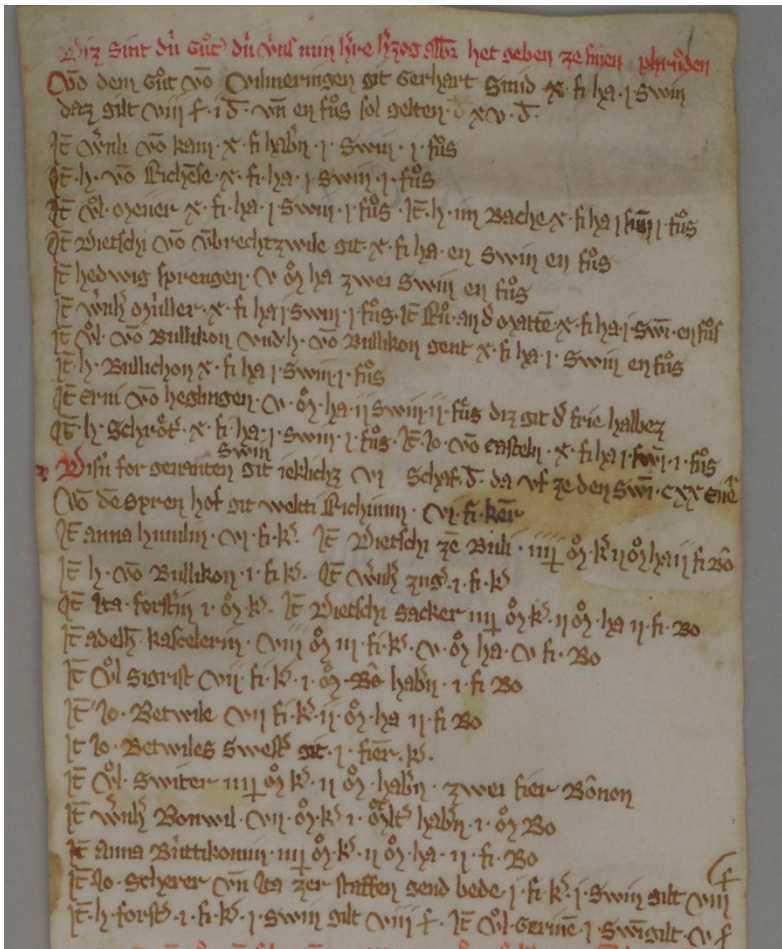 Diz sint dú Guͦt dú v́ns min h́re h́zog albr̄ het geben ze sinen phruͦnden
Vō dem Guͦt vō Vilmeringen git Gerhart Smid x · fi ha · j Swin
daz gilt viij ꝭ · i đ · vn̄ en fuͦs sol gelten · xv · đ ·
Jt̄ Wʼnli vō kam · x · fi habʼn · j · Swin · j · fuͦs
Jt̄ · h · vō Richēse · x · fi · ha · j · swin · j · fuͦs
Jt̄ Vͦl · meyer x · fi · ha · j swin · j fuͦs · Jt̄ · h · im Bache x · fi ha j swin j · fuͦs
Jt̄ Dietschi vō v̄brechtzwile git · x · fi ha · en swin en fuͦs
Jt̄ hedwig sprengen · v oͫ ha zwei Swin en fuͦs
Jt̄ Wʼnlʼ Mu̍ller · x · fi ha j swin · j · fuͦs · Jt̄ Ruͦ · an đ Mattē · x · fi · ha · j · swī · en fuͦs
Jt̄ Vͦl · vō Bullikon vnd · h · vō Bullikon gent x · fi · ha · j · swin en fuͦs
Jt̄ · h · Bullichon x · fi · ha j swin · j · fuͦs
Jt̄ Erni vō heglingen · v · oͫ · ha · ii swin · ii · fuͤs diz git đ frie halbez
Jt̄ · h · Schroͤtʼ · x · fi · ha · j · swin · j · fuͦs · Jt̄ · Jo · vō Casteln · x · fi ha j swin · j · fuͦs
Disʼn for genanten swin git ieklichz vj schaf · đ · da vf ze den swin · cxx enēʼ
Vō dē spren hof git welti Richinin · vj · fi · kēr
Jt̄ anna hunulin · vj · fi · kʼ · Jt̄ Dietschi zē Buli · iiij oͫ · kʼ ij oͫ ha ij fi Bō
Jt̄ · h · vō Bullikon · i · fi · kʼ · Jt̄ Wʼnlʼ zugʼ · i · fi · kʼ
Jt̄ Ita · forstʼin i · oͫ · kʼ · Jt̄ Dietschi sacker iiij oͫ · kʼ · ij oͫ · ha ij · fi · Bo
Jt̄ adelh̄ · kascelerin · viij oͫ iij · fi · kʼ · v · oͫ ha · v fi · Bo
Jt̄ Vͦl sigrist vij · fi · kʼ · i · oͫ habʼn · i · fi Bo
Jt̄ Jo · Betwile vij fi · kʼ · ij · oͫ · ha ij · fi Bo
Jt̄ Jo · Betwiles swestʼ git · j · fiēr · kʼ ·
Jt̄ Vͦl · switer iiij oͫ kʼ · ij oͫ · habʼn · zwei fier Bōnon
Jt̄ Wʼnlʼ Bonwil · vij · oͫ · kʼ i · habʼn · i · oͫ Bo
Jt̄ anna Bu̍ttikomin · iiij oͫ · kʼ · ij oͫ · ha · ij · fi · Bo
Jt̄ · Jo · scherer vn̄ Ita zer staffen gend bede j · fi · kʼ · j · swin gilt viij ꝭ
Jt̄ · h · forstʼ · i · fi · kʼ · j · swin gilt viij ꝭ · Jt̄ Vͦl · Gerinē · j swī gilt · v ꝭ